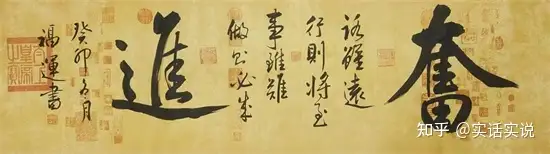 奮
路雖遠
行則將至
事雖難
做則必成
進
癸卯冬月
福運書
知乎 @实话实说